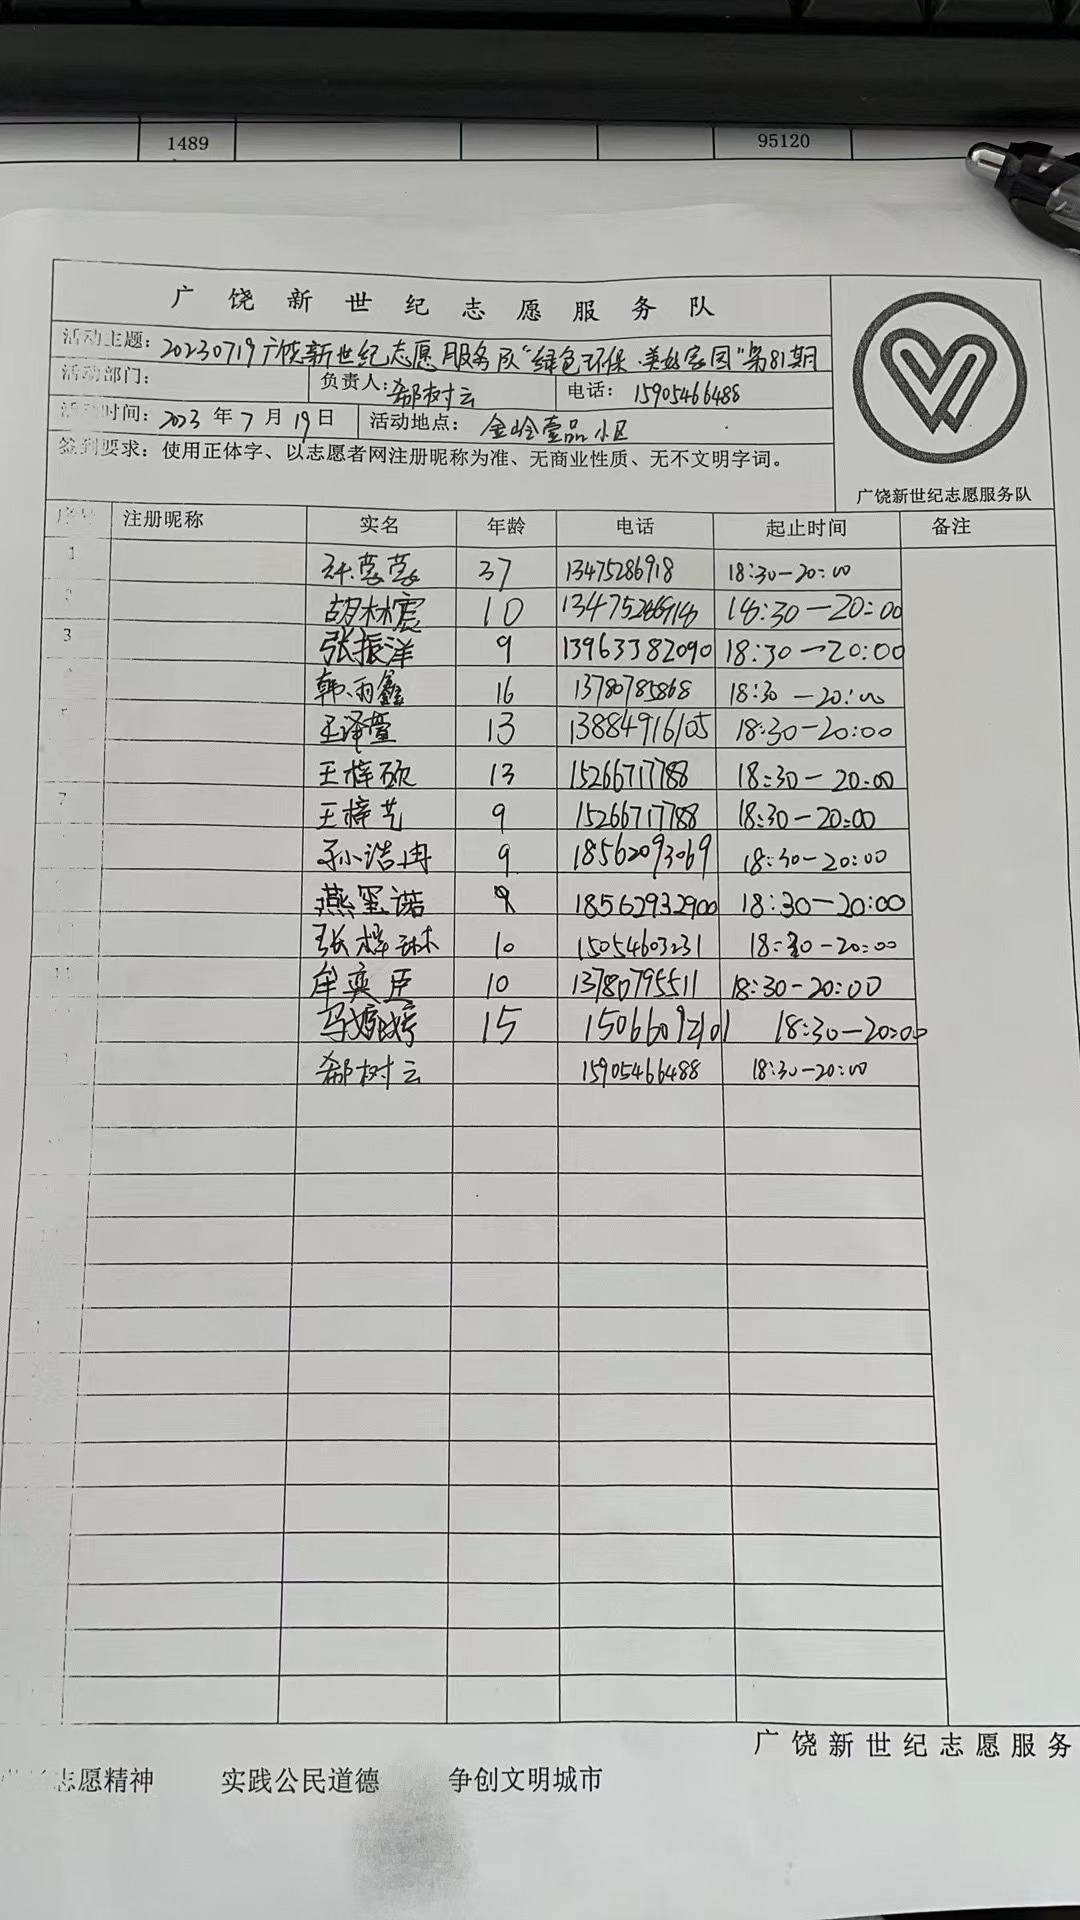 1489 95120
广饶新世纪志愿服务队
活动主题: 20230719广饶新世纪志愿服务队“绿色环保·美好家园”第81期
活动部门: 负责人: 郗树云 电话: 15905466488
活动时间: 2023 年 7 月 19 日 活动地点: 金岭壹品小区
签到要求: 使用正体字、以志愿者网注册昵称为准、无商业性质、无不文明字词。
广饶新世纪志愿服务队
序号 注册昵称 实名 年龄 电话 起止时间 备注
1 37 13475286918 18:30-20:00
2 胡林震 10 18:30-20:00
3 张振洋 9 13963382090 18:30-20:00
韩雨鑫 16 13780785868 18:30-20:00
王泽萱 13 13884916105 18:30-20:00
王梓硕 13 15266717788 18:30-20:00
7 王梓艺 9 15266717788 18:30-20:00
孙浩冉 9 18562093069 18:30-20:00
燕玺诺 18562932900 18:30-20:00
张梓琳 10 15054603231 18:30-20:00
11 牟奕臣 10 13780795511 18:30-20:00
马婷婷 15 15066092101 18:30-20:00
郗树云 15905466488 18:30-20:00
广饶新世纪志愿服务
志愿精神 实践公民道德 争创文明城市